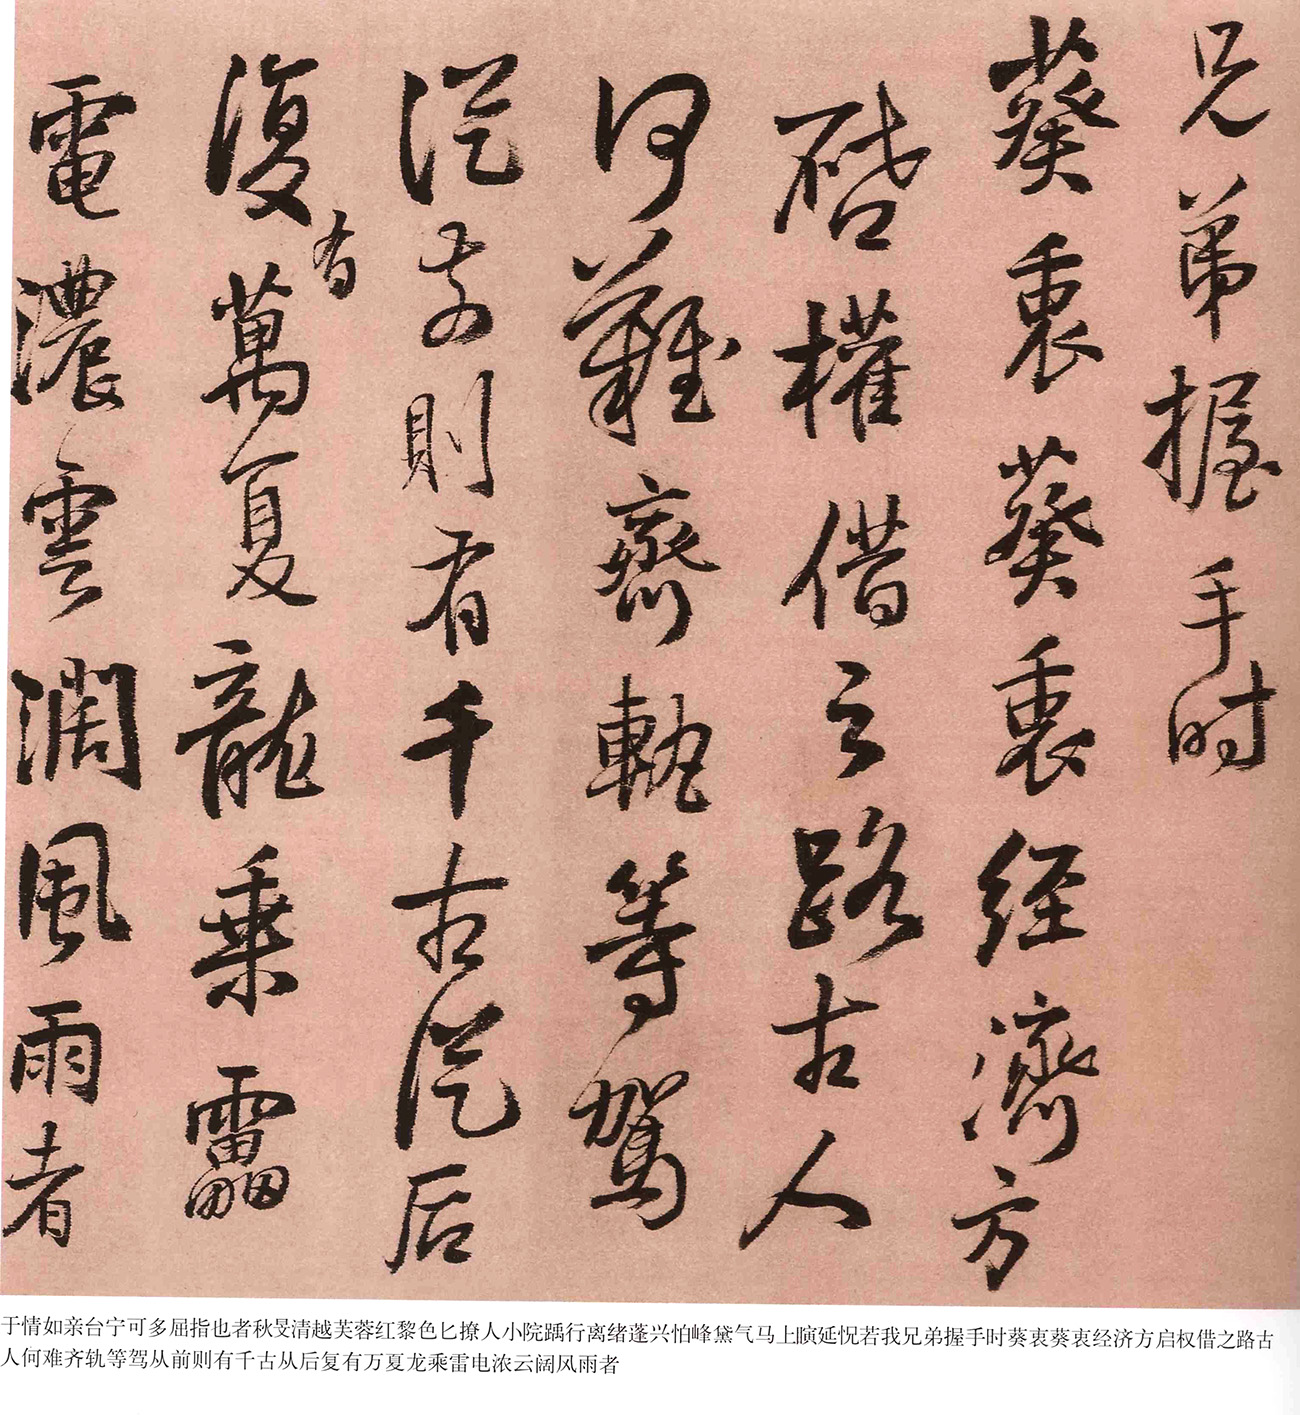 兄弟握手时
葵衷葵衷经濟方
啓權借之路古人
何難齊軌等駕
從前則有千古從后
復有萬夏龍乗靁
電濃雲濶風雨者
于情如亲台宁可多屈指也者秋旻清越芙蓉红黎色匕撩人小院踽行离绪蓬兴怕峰黛气马上瞚延怳若我兄弟握手时葵衷葵衷经济方启权借之路古
人何难齐轨等驾从前则有千古从后复有万夏龙乘雷电浓云阔风雨者